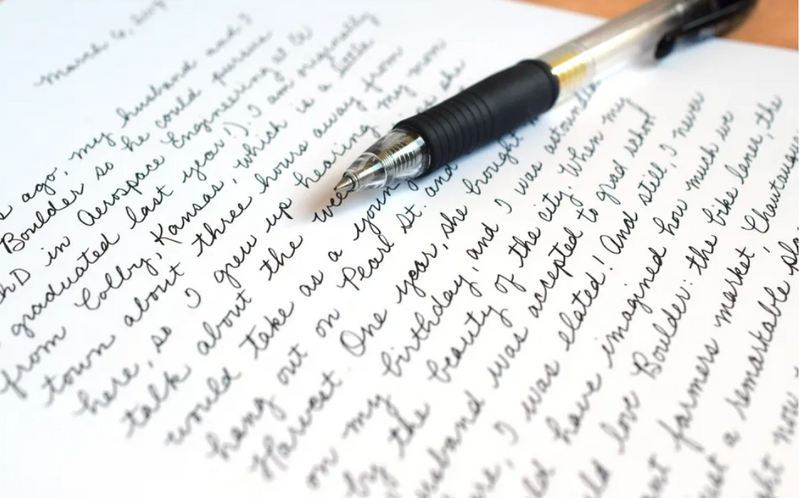 March 6, 
ago, my husband and I
Boulder so he could pursue
PhD in Aerospace Engineering at
graduated last year!). I am originally
from Colby, Kansas, which is a little
town about three hours away from
here, so I grew up hearing my mom
talk about the she
would take as a young
hang out on Pearl St. and
Harvest. One year, she brought
on my birthday, and I was
by the beauty of the city. When my
husband was accepted to grad school
I was elated! And still, I never
have imagined how much we
love Boulder: the bike lanes, the
farmers market, Chautauqua
a remarkable
now